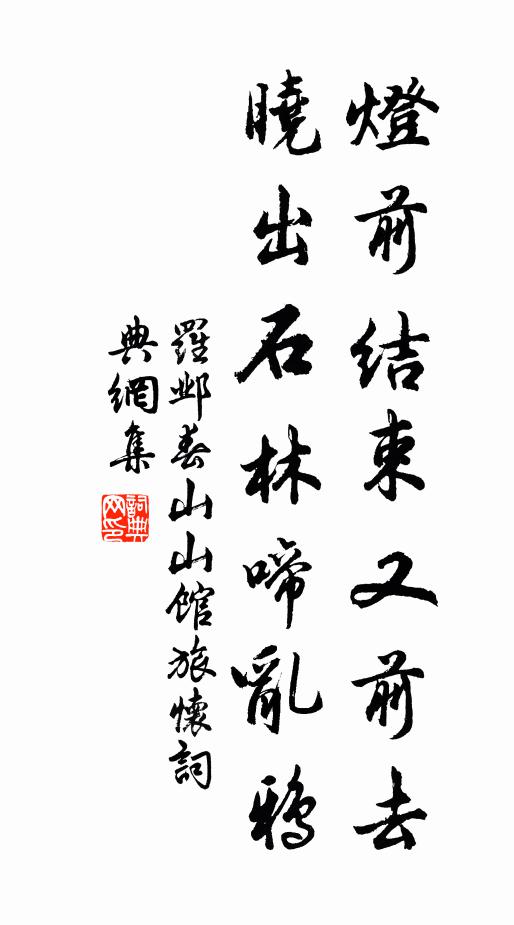 燈前結束又前去
曉出石林啼亂鴉
羅鄴春山山館旅懷詞
典網集
詞典网印